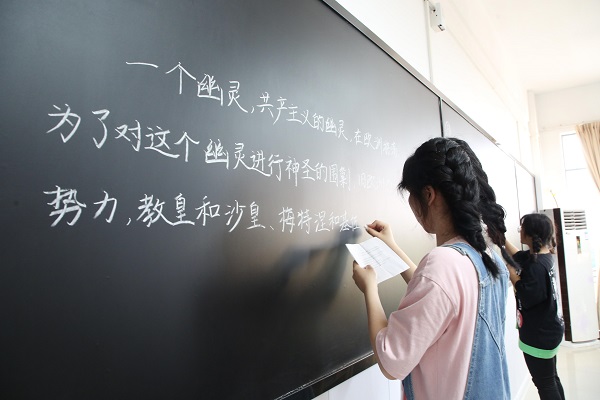 一个幽灵,共产主义的幽灵,在欧洲
为了对这个幽灵进行神圣的围剿
势力,教皇和沙皇、梅特涅和基